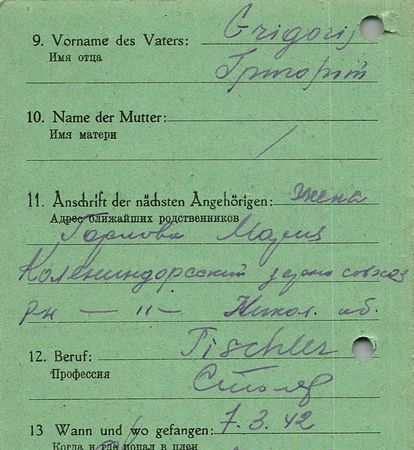 9. Vorname des Vaters: Grigorij
Имя отца Григорий
10. Name der Mutter:
Имя матери /
11. Anschrift der nächsten Angehörigen: жена
Адрес ближайших родственников
Горлова Мария
зерно совхоз
рн — 11 — Никол. об.
12. Beruf: Tischler
Профессия Столяр
13 Wann und wo gefangen: 7.3.42
Когда и где попал в плен